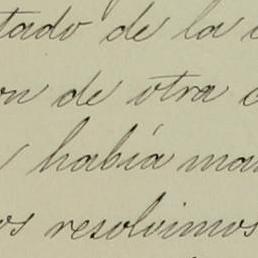 tado de la
on de otra
había man
os resolvimos